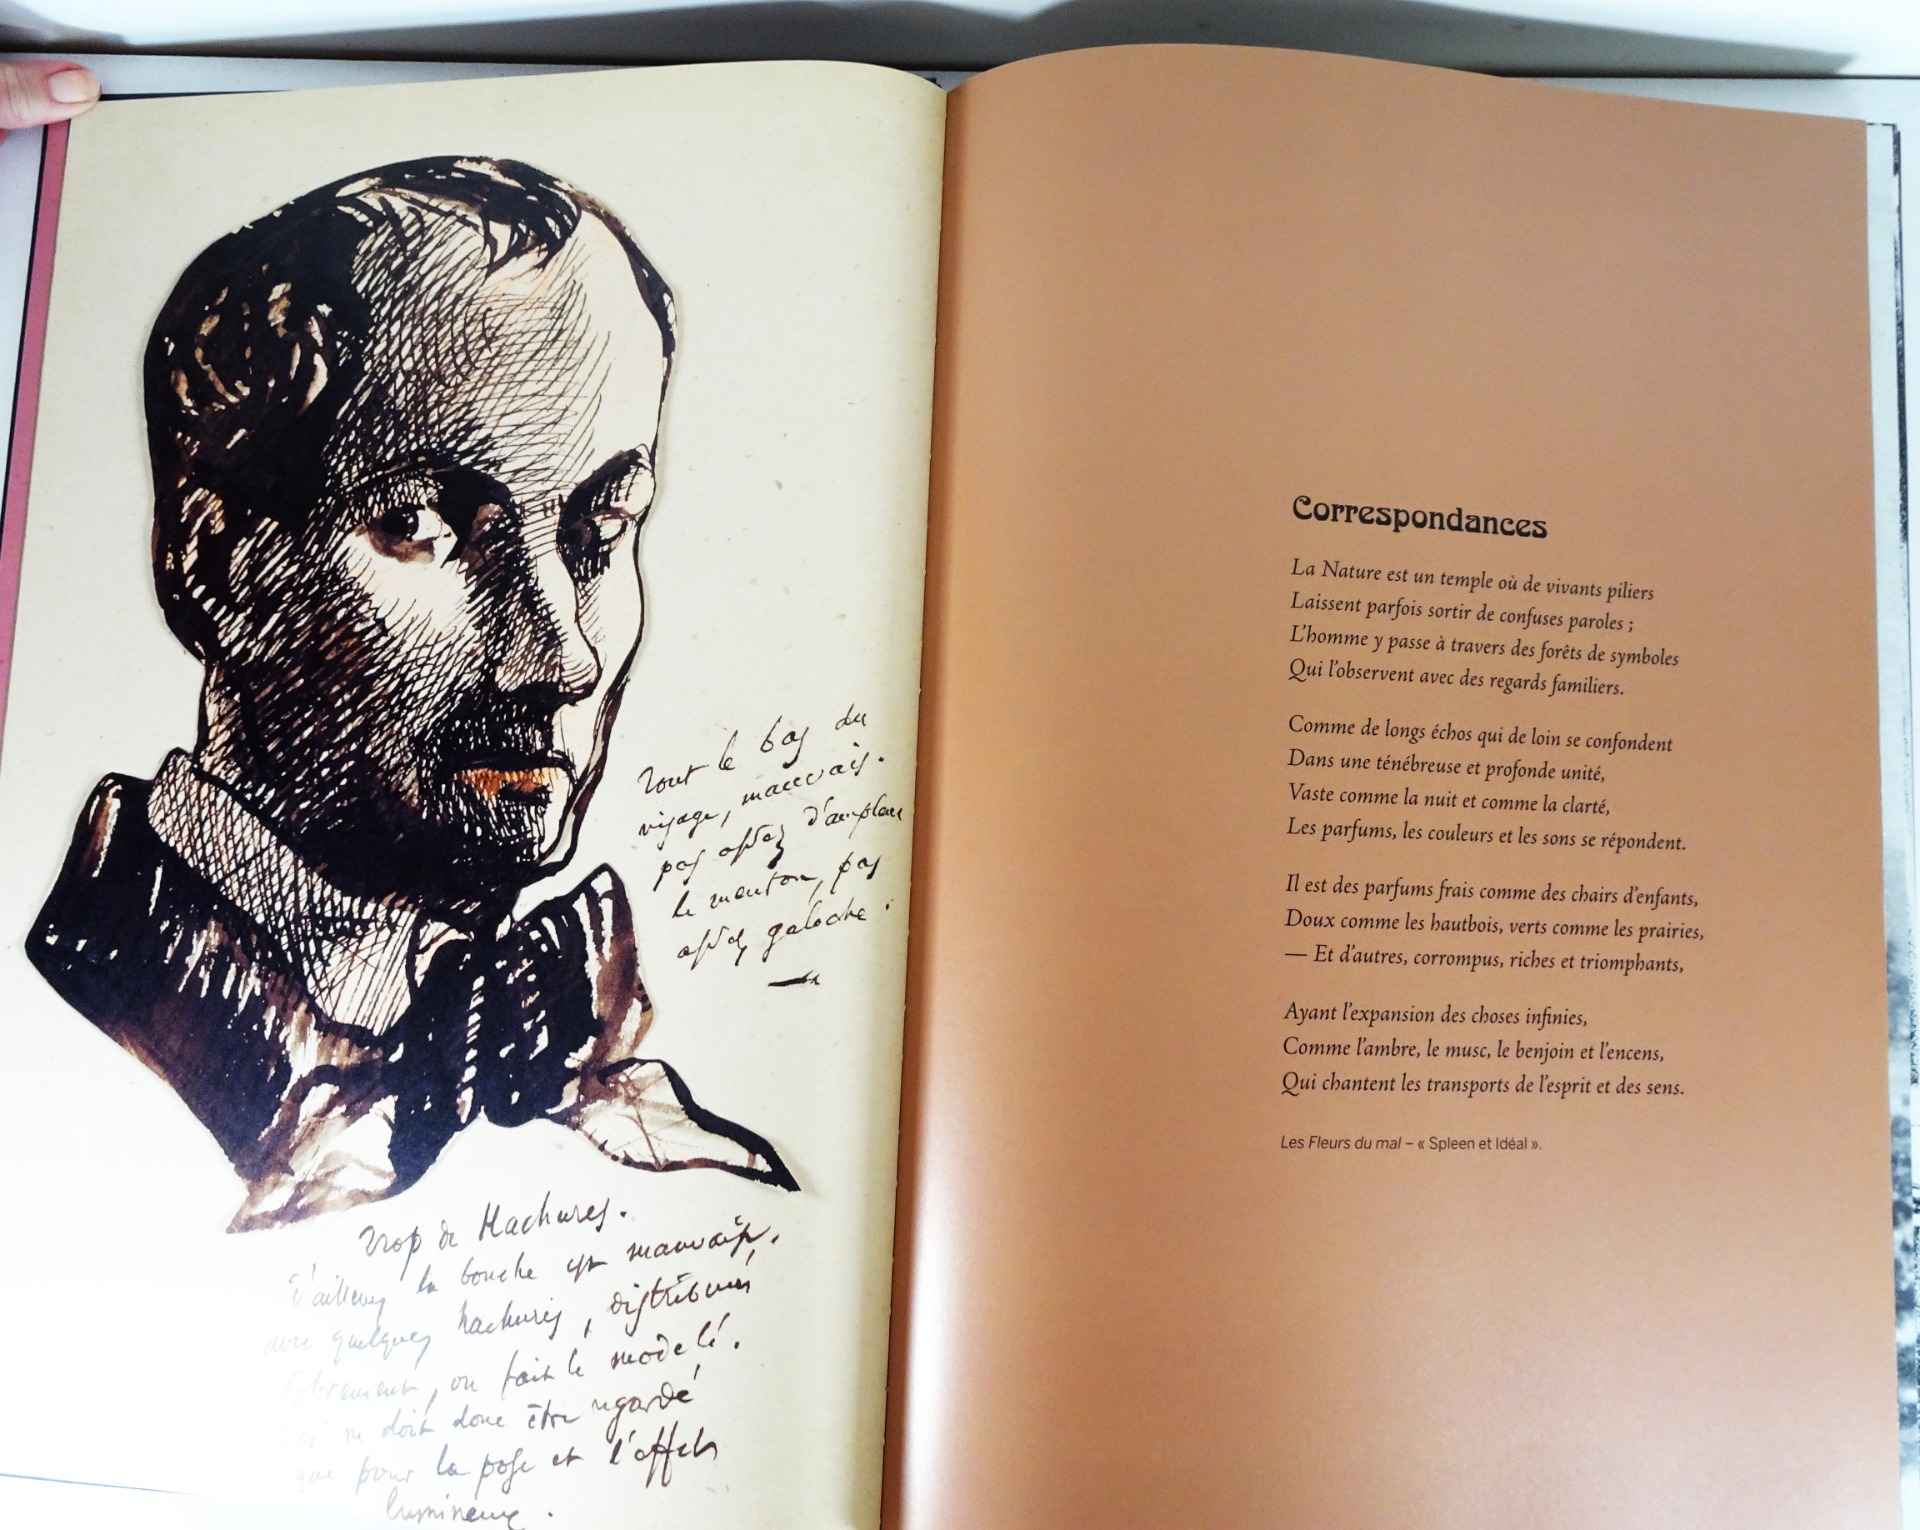 Tout le bas du
visage, mauvais.
pas assez d'ampleur
le menton, pas
assez galoche.
Trop de Hachures.
D'ailleurs la bouche est mauvaise.
avec quelques hachures, distribuées
sobrement, on fait le modelé.
ne doit donc être regardé
que pour la pose et l'effet
lumineux.
Correspondances
La Nature est un temple où de vivants piliers
Laissent parfois sortir de confuses paroles ;
L'homme y passe à travers des forêts de symboles
Qui l'observent avec des regards familiers.
Comme de longs échos qui de loin se confondent
Dans une ténébreuse et profonde unité,
Vaste comme la nuit et comme la clarté,
Les parfums, les couleurs et les sons se répondent.
Il est des parfums frais comme des chairs d'enfants,
Doux comme les hautbois, verts comme les prairies,
— Et d'autres, corrompus, riches et triomphants,
Ayant l'expansion des choses infinies,
Comme l'ambre, le musc, le benjoin et l'encens,
Qui chantent les transports de l'esprit et des sens.
Les Fleurs du mal – « Spleen et Idéal ».